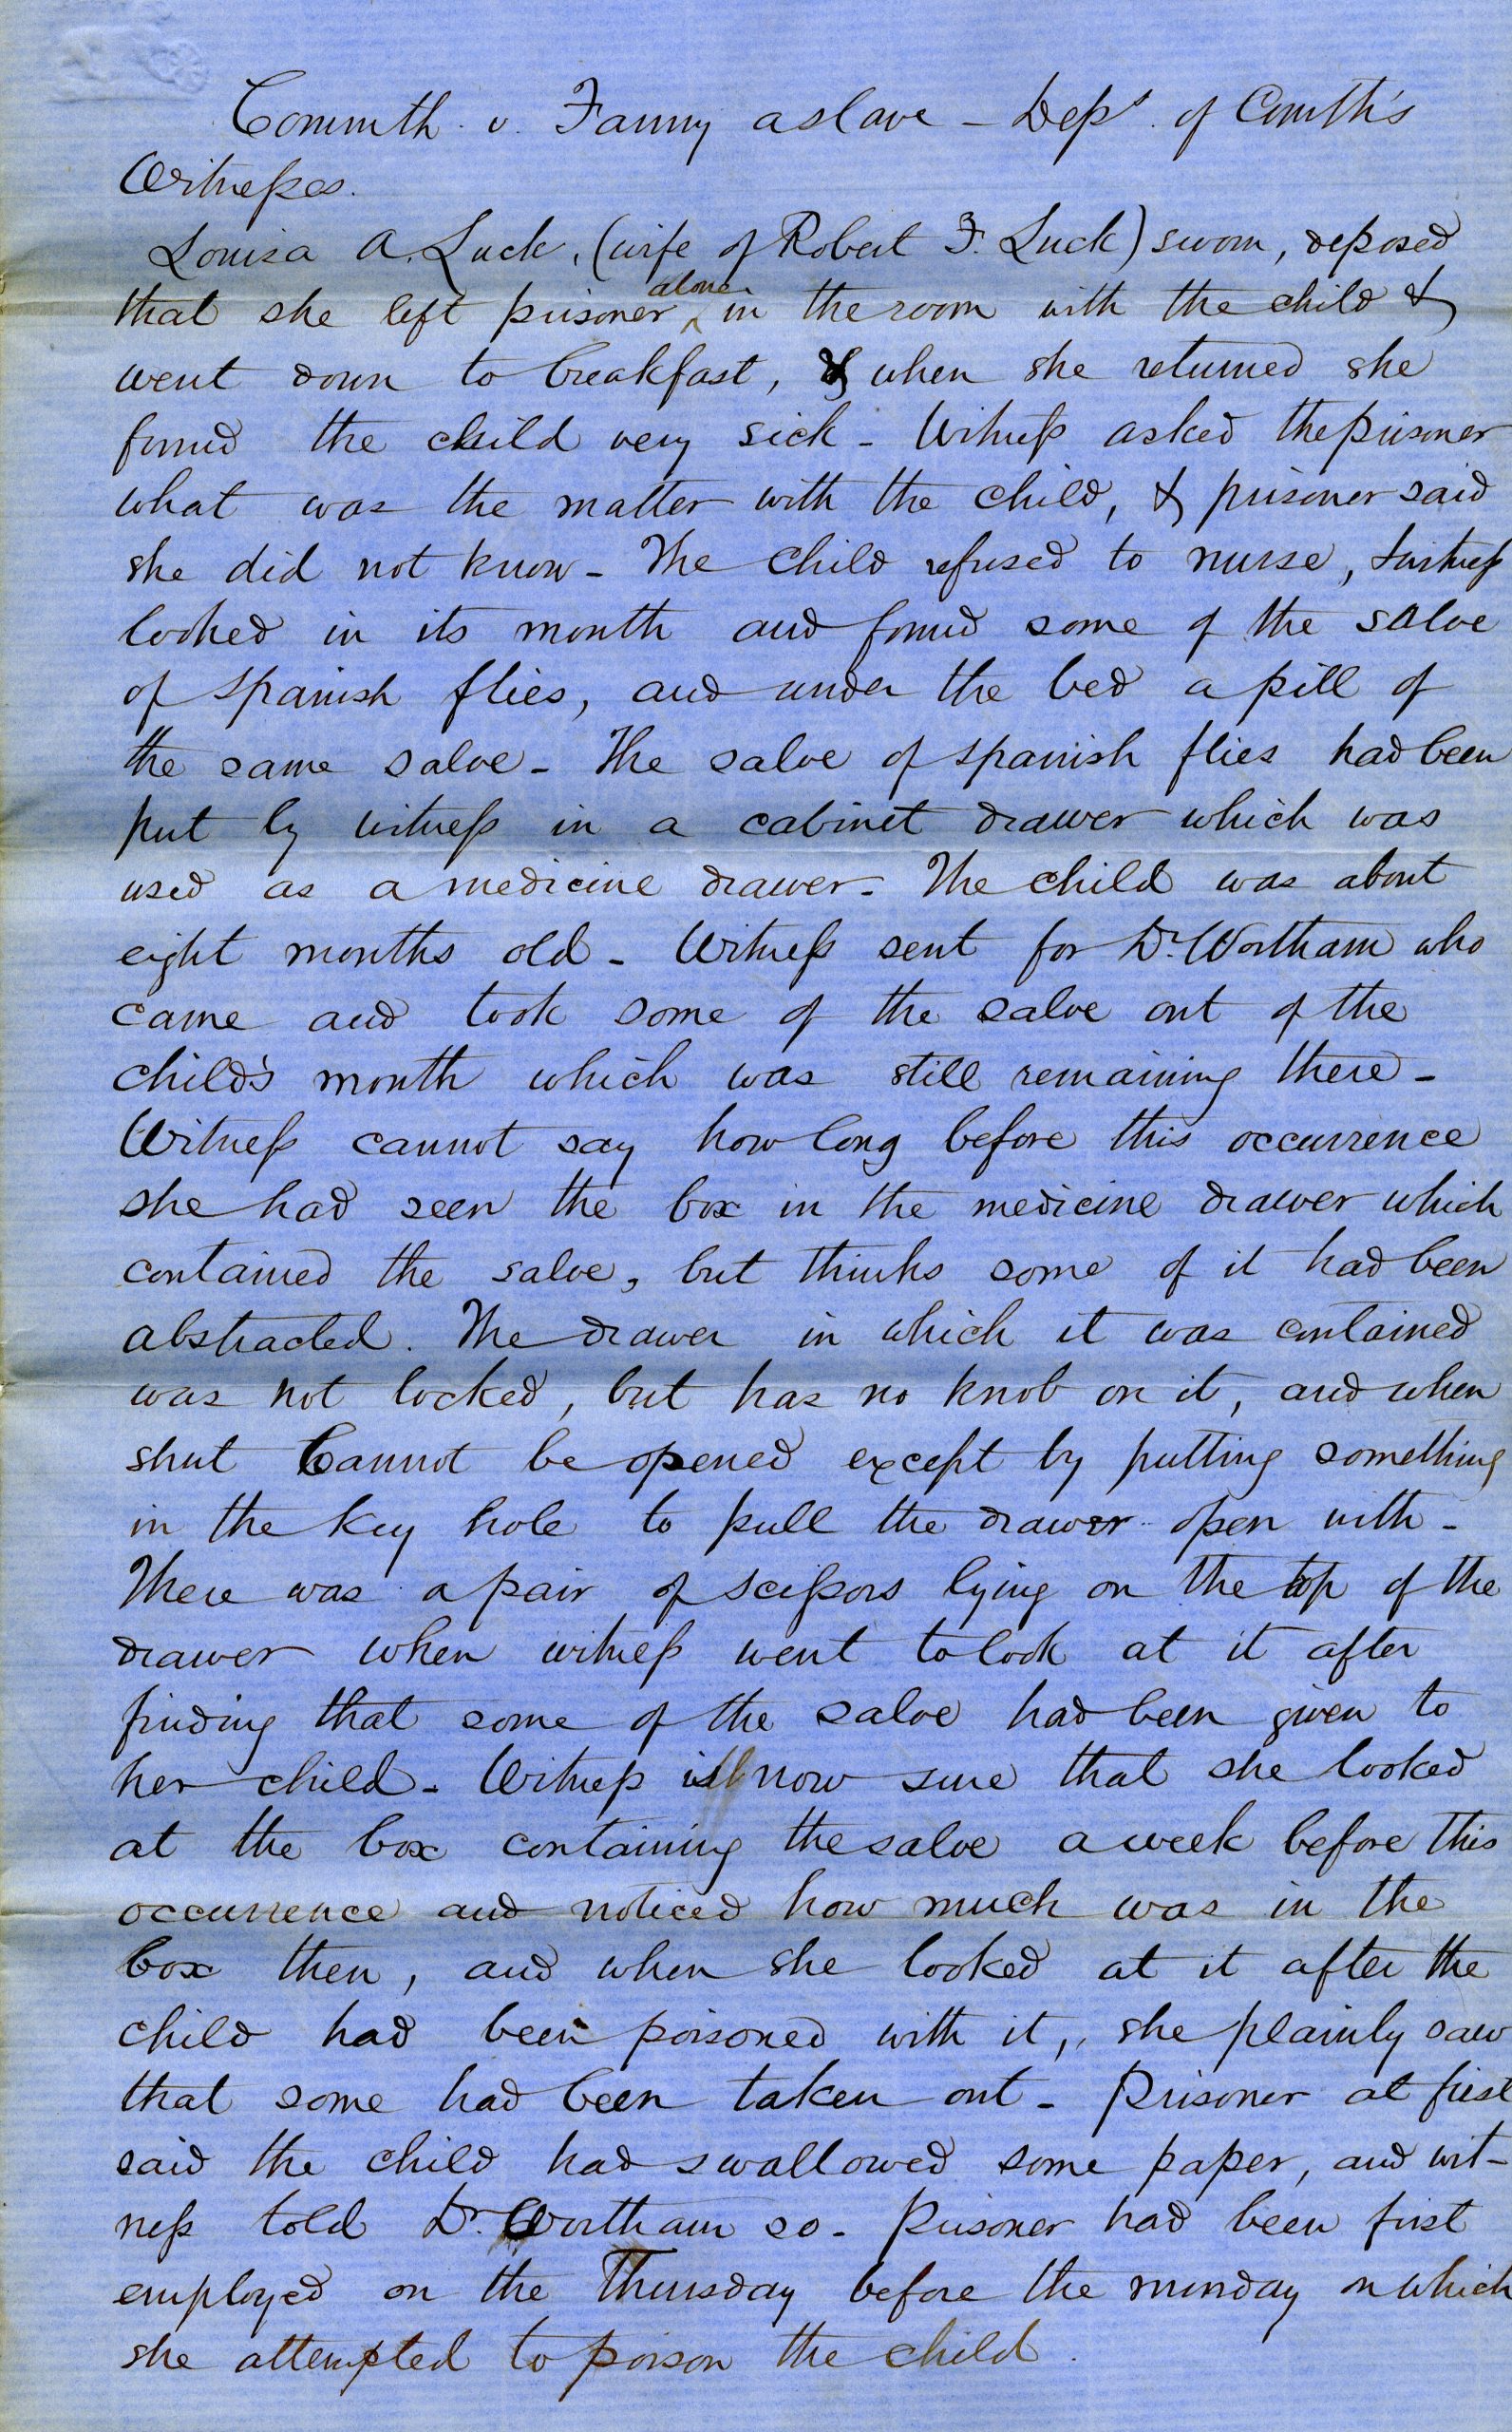 Commth. v. Fanny a slave – Deps. of Cmth's
Witnesses.
Louisa A. Luck, (wife of Robert F. Luck) sworn, deposed
that she left prisoner ^alone in the room with the child &
went down to breakfast, & when she returned she
found the child very sick – Witness asked the prisoner
what was the matter with the child, & prisoner said
she did not know – The child refused to nurse, & witness
looked in its mouth and found some of the salve
of spanish flies, and under the bed a pill of
the same salve – The salve of spanish flies had been
put by witness in a cabinet drawer which was
used as a medicine drawer – The child was about
eight months old – Witness sent for Dr. Wortham who
came and took some of the salve out of the
child's mouth which was still remaining there –
Witness cannot say how long before this occurrence
she had seen the box in the medicine drawer which
contained the salve, but thinks some of it had been
abstracted. The drawer in which it was contained
was not locked, but has no knob on it, and when
shut cannot be opened except by putting something
in the key hole to pull the drawer open with –
There was a pair of scissors lying on the top of the
drawer when witness went to look at it after
finding that some of the salve had been given to
her child – Witness is now sure that she looked
at the box containing the salve a week before this
occurrence and noticed how much was in the
box then, and when she looked at it after the
child had been poisoned with it, she plainly saw
that some had been taken out – Prisoner at first
said the child had swallowed some paper, and wit-
ness told Dr. Wortham so – Prisoner had been first
employed on the Thursday before the monday on which
she attempted to poison the child.